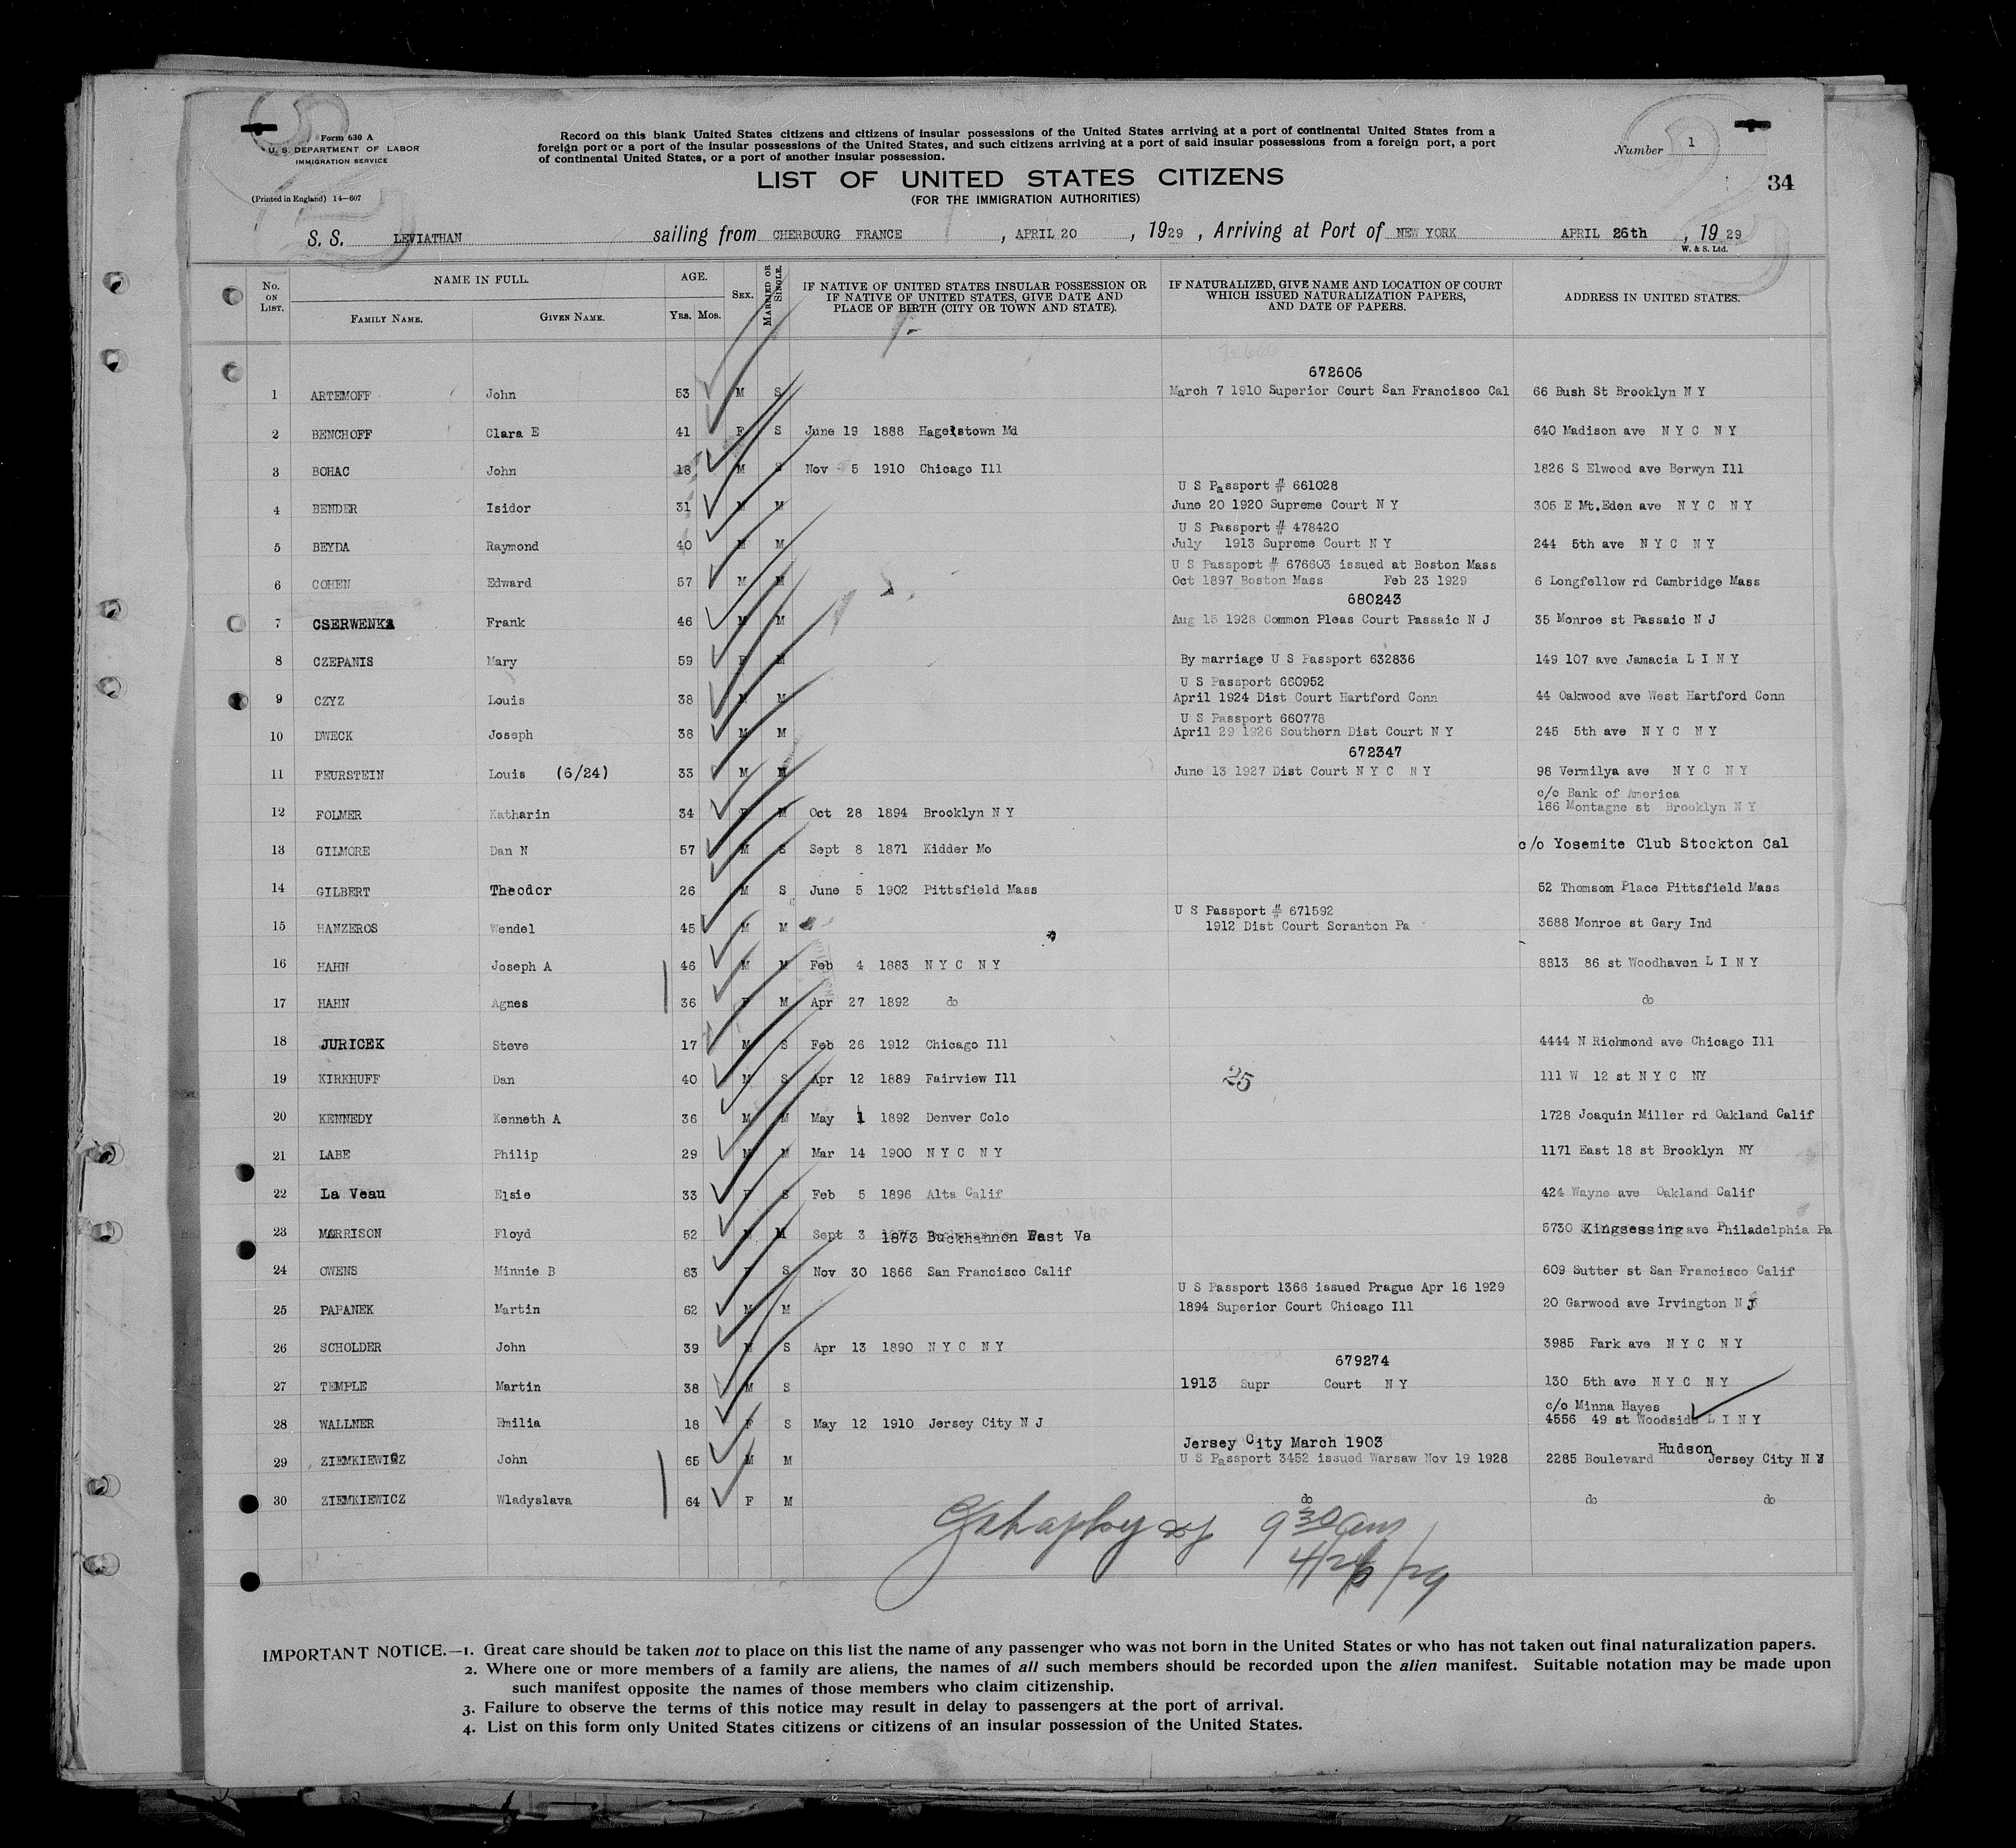 Form 630 A
U. S. DEPARTMENT OF LABOR
IMMIGRATION SERVICE
(Printed in England) 14—607
Record on this blank United States citizens and citizens of insular possessions of the United States arriving at a port of continental United States from a
foreign port or a port of the insular possessions of the United States, and such citizens arriving at a port of said insular possessions from a foreign port, a port
of continental United States, or a port of another insular possession.
Number 1
34
LIST OF UNITED STATES CITIZENS
(FOR THE IMMIGRATION AUTHORITIES)
S. S. LEVIATHAN sailing from CHERBOURG FRANCE, APRIL 20, 1929, Arriving at Port of NEW YORK APRIL 26th, 1929
W. & S. Ltd.
No. ON LIST. NAME IN FULL. FAMILY NAME. GIVEN NAME. AGE. YRS. MOS. SEX. MARRIED OR SINGLE. IF NATIVE OF UNITED STATES INSULAR POSSESSION OR IF NATIVE OF UNITED STATES, GIVE DATE AND PLACE OF BIRTH (CITY OR TOWN AND STATE). IF NATURALIZED, GIVE NAME AND LOCATION OF COURT WHICH ISSUED NATURALIZATION PAPERS, AND DATE OF PAPERS. ADDRESS IN UNITED STATES.
672606
1 ARTEMOFF John 53 M S March 7 1910 Superior Court San Francisco Cal 66 Bush St Brooklyn N Y
2 BENCHOFF Clara E 41 F S June 19 1888 Hagerstown Md 640 Madison ave N Y C N Y
3 BOHAC John 18 M S Nov 5 1910 Chicago Ill 1826 S Elwood ave Berwyn Ill
U S Passport # 661028
4 BENDER Isidor 31 M M June 20 1920 Supreme Court N Y 305 E Mt.Eden ave N Y C N Y
U S Passport # 478420
5 BEYDA Raymond 40 M M July 1913 Supreme Court N Y 244 5th ave N Y C N Y
U S Passport # 676603 issued at Boston Mass
6 COHEN Edward 57 M M Oct 1897 Boston Mass Feb 23 1929 6 Longfellow rd Cambridge Mass
680243
7 CSERWENKA Frank 46 M M Aug 15 1928 Common Pleas Court Passaic N J 35 Monroe st Passaic N J
8 CZEPANIS Mary 59 F M By marriage U S Passport 632836 149 107 ave Jamacia L I N Y
U S Passport 660952
9 CZYZ Louis 38 M M April 1924 Dist Court Hartford Conn 44 Oakwood ave West Hartford Conn
U S Passport 660778
10 DWECK Joseph 38 M M April 29 1926 Southern Dist Court N Y 245 5th ave N Y C N Y
672347
11 FEURSTEIN Louis (6/24) 33 M M June 13 1927 Dist Court N Y C N Y 98 Vermilya ave N Y C N Y
c/o Bank of America
12 FOLMER Katharin 34 F M Oct 28 1894 Brooklyn N Y 166 Montagne st Brooklyn N Y
13 GILMORE Dan N 57 M S Sept 8 1871 Kidder Mo c/o Yosemite Club Stockton Cal
14 GILBERT Theodor 26 M S June 5 1902 Pittsfield Mass 52 Thomson Place Pittsfield Mass
U S Passport # 671592
15 HANZEROS Wendel 45 M M 1912 Dist Court Scranton Pa 3688 Monroe st Gary Ind
16 HAHN Joseph A 46 M M Feb 4 1883 N Y C N Y 8813 86 st Woodhaven L I N Y
17 HAHN Agnes 36 F M Apr 27 1892 do do
18 JURICEK Steve 17 M S Feb 26 1912 Chicago Ill 4444 N Richmond ave Chicago Ill
19 KIRKHUFF Dan 40 M S Apr 12 1889 Fairview Ill 25 111 W 12 st N Y C NY
20 KENNEDY Kenneth A 36 M M May 1 1892 Denver Colo 1728 Joaquin Miller rd Oakland Calif
21 LABE Philip 29 M M Mar 14 1900 N Y C N Y 1171 East 18 st Brooklyn NY
22 La Veau Elsie 33 F S Feb 5 1896 Alta Calif 424 Wayne ave Oakland Calif
23 MORRISON Floyd 52 M M Sept 3 1873 Buckhannon West Va 5730 Kingsessing ave Philadelphia Pa
24 OWENS Minnie B 63 F S Nov 30 1866 San Francisco Calif 609 Sutter st San Francisco Calif
U S Passport 1366 issued Prague Apr 16 1929
25 PAPANEK Martin 62 M M 1894 Superior Court Chicago Ill 20 Garwood ave Irvington N J
26 SCHOLDER John 39 M S Apr 13 1890 N Y C N Y 3985 Park ave N Y C N Y
679274
27 TEMPLE Martin 38 M S 1913 Supr Court N Y 130 5th ave N Y C N Y
c/o Minna Hayes
28 WALLNER Emilia 18 F S May 12 1910 Jersey City N J 4556 49 st Woodside L I N Y
Jersey City March 1903
29 ZIEMKIEWICZ John 65 M M U S Passport 3452 issued Warsaw Nov 19 1928 2285 Hudson Boulevard Jersey City N J
30 ZIEMKIEWICZ Wladyslava 64 F M do do do
9 30 am
4/26/29
IMPORTANT NOTICE.—1. Great care should be taken not to place on this list the name of any passenger who was not born in the United States or who has not taken out final naturalization papers.
2. Where one or more members of a family are aliens, the names of all such members should be recorded upon the alien manifest. Suitable notation may be made upon
such manifest opposite the names of those members who claim citizenship.
3. Failure to observe the terms of this notice may result in delay to passengers at the port of arrival.
4. List on this form only United States citizens or citizens of an insular possession of the United States.